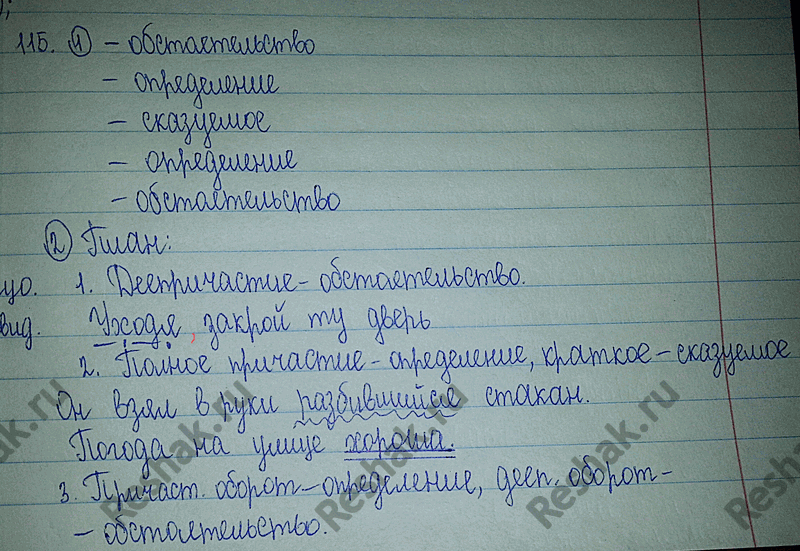 115. ① - обстоятельство
- определение
- сказуемое
- определение
- обстоятельство
② План:
1. Деепричастие - обстоятельство.
Уходя, закрой ту дверь
2. Полное причастие - определение, краткое - сказуемое
Он взял в руки разбившийся стакан.
Погода на улице хороша.
3. Причаст. оборот - определение, дееп. оборот -
- обстоятельство.
вид.
Reshak.ru
Reshak.ru
Reshak.ru